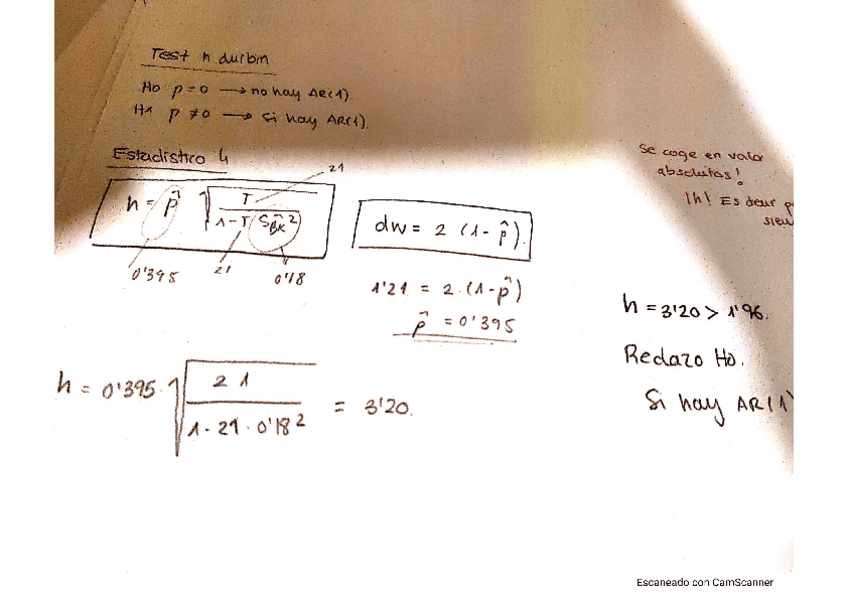 Test h durbin
Ho p = 0 → no hay AR(1).
H1 p ≠ 0 → Si hay AR(1).
Estadístico h
21
h = p̂ √ T / 1-T (Sβ̂k²)
0'395 21 0'18
dw = 2 (1- p̂).
1'21 = 2·(1-p̂)
p̂ = 0'395
h = 0'395·√ 21 / 1-21·0'18² = 3'20.
Se coge en valor
absolutos!
|h| Es decir p
h = 3'20 > 1'96.
Redazo Ho.
Si hay AR(1)
Escaneado con CamScanner